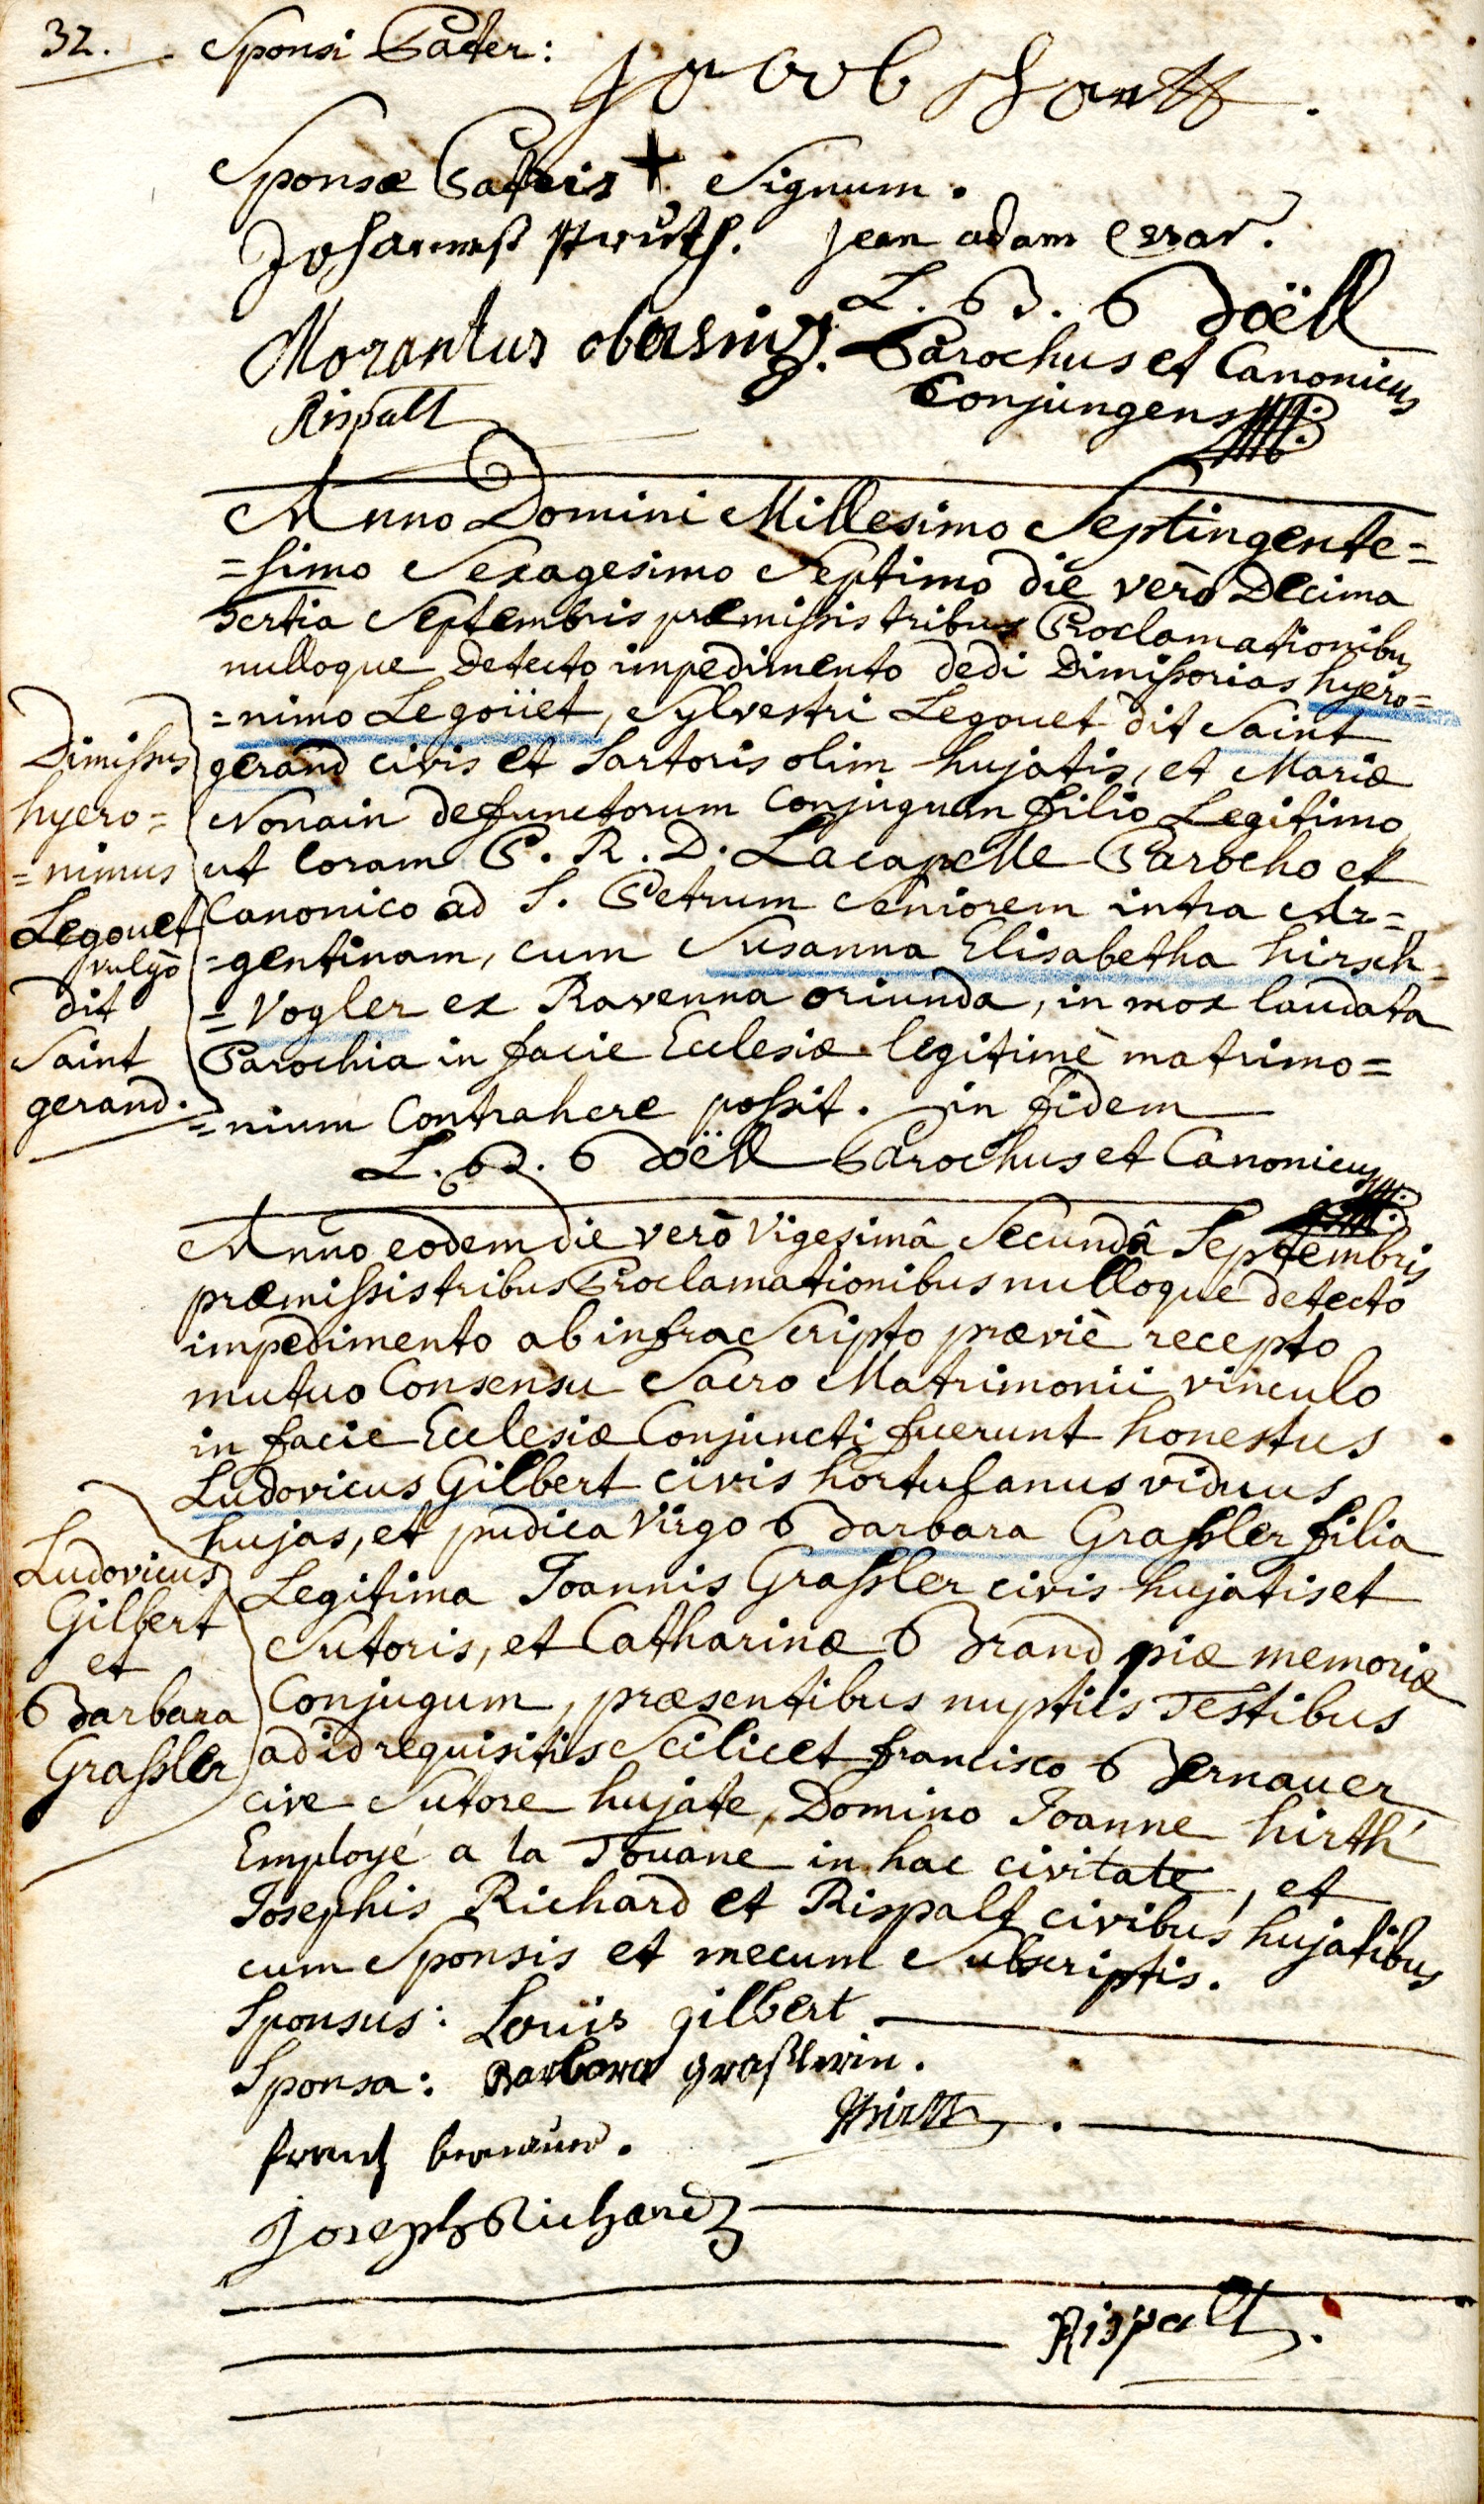 32. Sponsi Pater:
Jacob
Sponsæ Patris + Signum.
Johannes jean adam
L. B. Böell
Morantus Parochus et Canonicus
Rispalt Conjungens
Anno Domini Millesimo Septingente=
=simo Sexagesimo Septimo die verò Decima
tertia Septembris præmissis tribus Proclamationibus
nulloque detecto impedimento dedi Dimissorias hyero=
=nimo Legoüet, Sylvestri Legouet dit Saint
gerand civis et Sartoris olim hujatis, et Mariæ
Nonain defunctorum Conjugum filio Legitimo
ut Coram P. R. D. Lacapelle Parocho et
Canonico ad S. Petrum Seniorem intra Ar=
=gentinam, cum Susanna Elisabetha hirsch=
=Vogler ex Ravenna oriunda, in mox laudata
Parochia in facie Ecclesiæ legitimè matrimo=
=nium Contrahere possit. in fidem
L. B. Böell Parochus et Canonicus
Dimissus
hyero=
=nimus
Legouet
vulgò
dit
Saint
gerand.
Anno eodem die verò Vigesimâ Secundâ Septembris
præmissis tribus Proclamationibus nulloque detecto
impedimento ab infra Scripto præviè recepto
mutuo Consensu Sacro Matrimonii vinculo
in facie Ecclesiæ Conjuncti fuerunt honestus
Ludovicus Gilbert civis hortulanus viduus
hujas, et pudica Virgo Barbara Grassler filia
Legitima Joannis Grassler civis hujatis et
Sutoris, et Catharinæ Brand piæ memoriæ
Conjugum, præsentibus nuptiis Testibus
ad id requisitis Scilicet francisco Bernauer
cive Sutore hujate, Domino Joanne hirth
Employé a la Douane in hac civitate, et
Josephis Richard et Rispalt civibus hujatibus
cum Sponsis et mecum Subscriptis.
Ludovicus
Gilbert
et
Barbara
Grassler
Sponsus: Louis gilbert
Sponsa: Barbara graßlerin.
frantz bernauer. Hirth.
Joseph Richard
Rispalt.